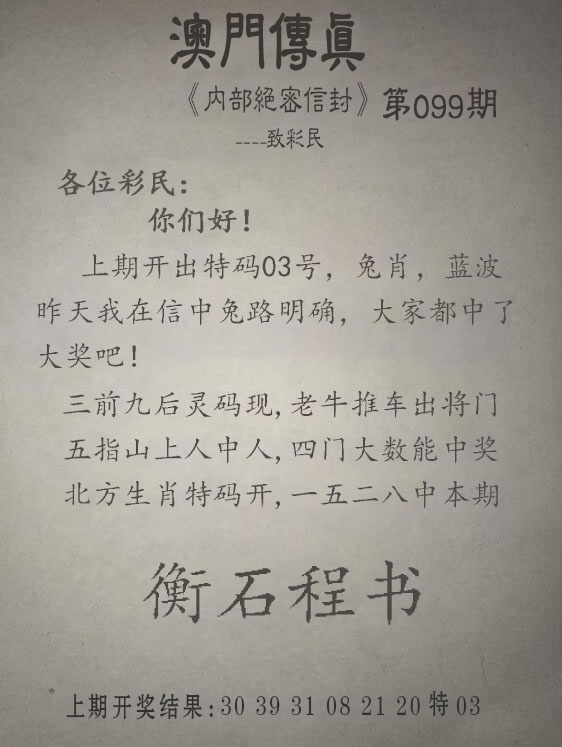 澳門傳眞
《内部絕密信封》第099期
----致彩民
各位彩民：
你们好！
上期开出特码03号，兔肖，蓝波
昨天我在信中兔路明确，大家都中了
大奖吧！
三前九后灵码现,老牛推车出将门
五指山上人中人,四门大数能中奖
北方生肖特码开,一五二八中本期
衡石程书
上期开奖结果:30 39 31 08 21 20 特 03